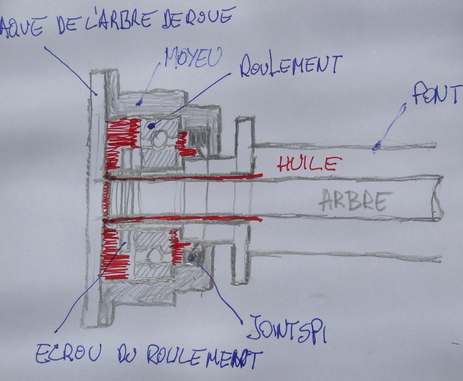 AQUE DE L'ARBRE DE ROUE
MOYEU
ROULEMENT
PONT
HUILE
ARBRE
JOINT SPI
ECROU DU ROULEMENT